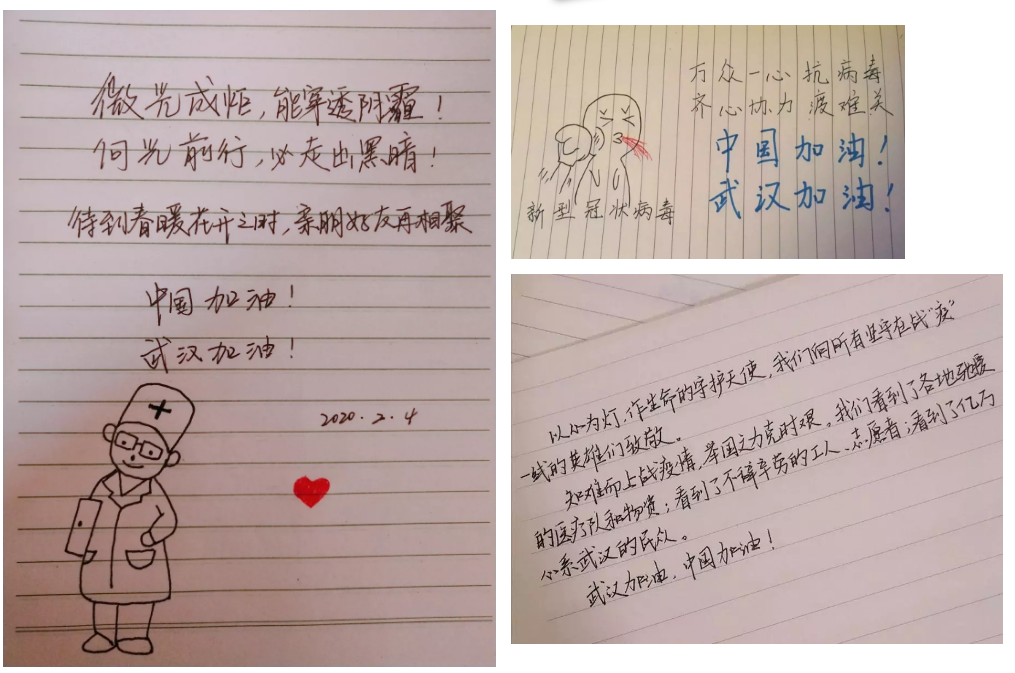 微光成炬，能穿透阴霾！
向光前行，必走出黑暗！
待到春暖花开之时，亲朋好友再相聚
中国加油！
武汉加油！
2020.2.4
万众一心抗病毒
齐心协力渡难关
中国加油！
武汉加油！
新型冠状病毒
以心为灯，作生命的守护天使，我们向所有坚守在战“疫”
一线的英雄们致敬。
知难而上战疫情，举国之力克时艰。我们看到了各地驰援
的医疗队和物资；看到了不辞辛劳的工人、志愿者；看到了亿万
心系武汉的民众。
武汉加油，中国加油！